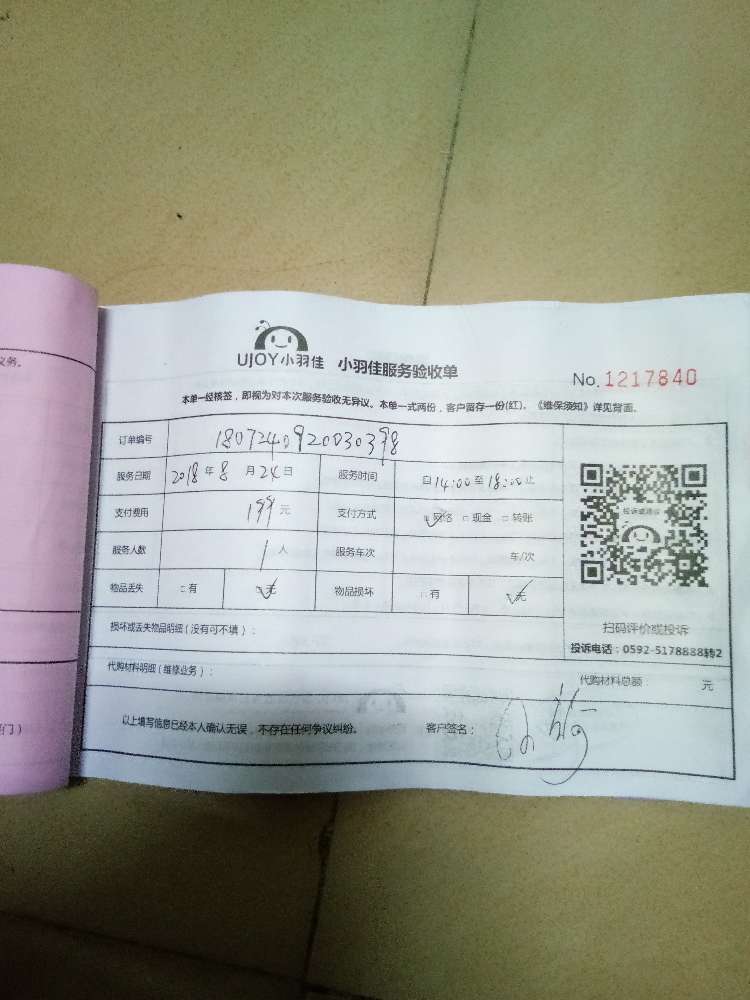 UJOY小羽佳 小羽佳服务验收单
No. 1217840
本单一经核签，即视为对本次服务验收无异议。本单一式两份，客户留存一份(红)。《维保须知》详见背面。
订单编号 1807240920030398
服务日期 2018年8月24日 服务时间 自14:00至18:00止
支付费用 199元 支付方式 网络 现金 转账
服务人数 1人 服务车次 车/次
物品丢失 有 无 物品损坏 有 无
投诉或建议
扫码评价或投诉
投诉电话：0592-5178888转2
损坏或丢失物品明细（没有可不填）：
代购材料明细（维修业务）： 代购材料总额 元
以上填写信息已经本人确认无误，不存在任何争议纠纷。 客户签名：
义务。
门）